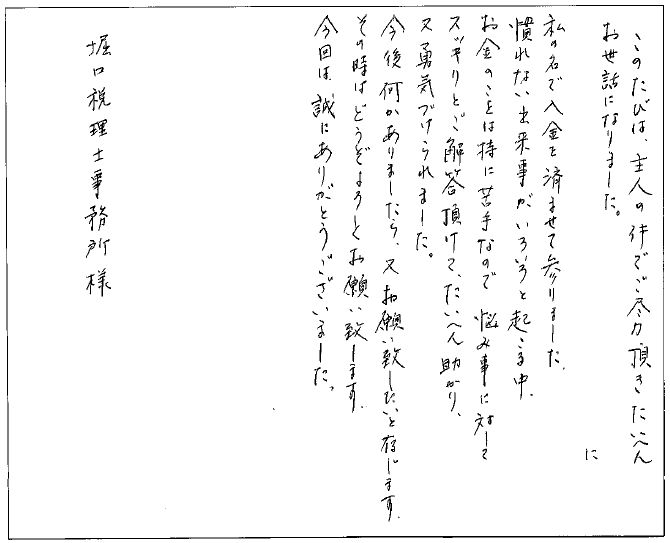 このたびは、主人の件でご尽力頂きたいへん
に
お世話になりました。
私の名で入金を済ませて参りました。
慣れない出来事がいろいろと起こる中、
お金のことは特に苦手なので 悩み事に対して
スッキリとご解答頂けて、たいへん助かり、
又勇気づけられました。
今後何かありましたら、又お願い致したいと存じます。
その時はどうぞよろしくお願い致します。
今回は、誠にありがとうございました。
堀口税理士事務所様